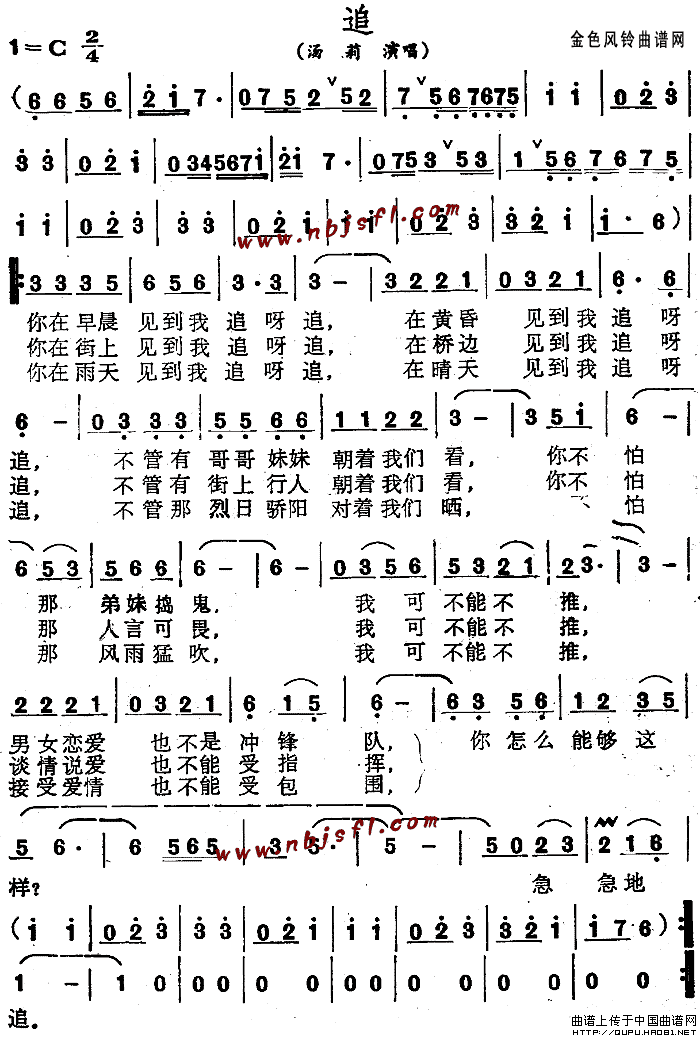 追
1=C 2/4
(汤 莉 演唱)
金色风铃曲谱网
( 6 6 5 6 | 2 i 7 · | 0 7 5 2 5 2 | 7 5 6 7675 | i i | 0 2 3 |
3 3 | 0 2 i | 034567i | 2i 7 · | 0 75 3 5 3 | 1 5 6 7 6 7 5 |
i i | 0 2 3 | 3 3 | 0 2 i | i i | 0 2 3 | 3 2 i | i · 6 )
3 3 3 5 | 6 5 6 | 3 · 3 | 3 - | 3 2 2 1 | 0 3 2 1 | 6 · 6
你在早晨 见到我 追 呀 追, 在黄昏 见到我 追 呀
你在街上 见到我 追 呀 追, 在桥边 见到我 追 呀
你在雨天 见到我 追 呀 追, 在晴天 见到我 追 呀
6 - | 0 3 3 3 | 5 5 6 6 | 1 1 2 2 | 3 - | 3 5 i | 6 -
追, 不管有 哥哥 妹妹 朝着我们 看, 你不 怕
追, 不管有 街上 行人 朝着我们 看, 你不 怕
追, 不管那 烈日 骄阳 对着我们 晒, 怕
6 5 3 | 5 6 6 | 6 - | 6 - | 0 3 5 6 | 5 3 2 1 | 2 3 · | 3 -
那 弟妹捣 鬼, 我 可 不能不 推,
那 人言可 畏, 我 可 不能不 推,
那 风雨猛 吹, 我 可 不能不 推,
2 2 2 1 | 0 3 2 1 | 6 1 5 | 6 - | 6 3 5 6 | 1 2 3 5
男女恋爱 也不是 冲 锋 队, 你 怎么 能够 这
谈情说爱 也不能 受 指 挥,
接受爱情 也不能 受 包 围,
5 6 · | 6 5 6 5 | 3 5 · | 5 - | 5 0 2 3 | 2 1 6
样? 急 急地
www.nbjsfl.com
www.nbjsfl.com
( i i | 0 2 3 | 3 3 | 0 2 i | i i | 0 2 3 | 3 2 i | i 7 6 )
1 - | 1 0 | 0 0 | 0 0 | 0 0 | 0 0 | 0 0 | 0 0
追.
曲谱上传于中国曲谱网
http://QUPU.HAO81.NET